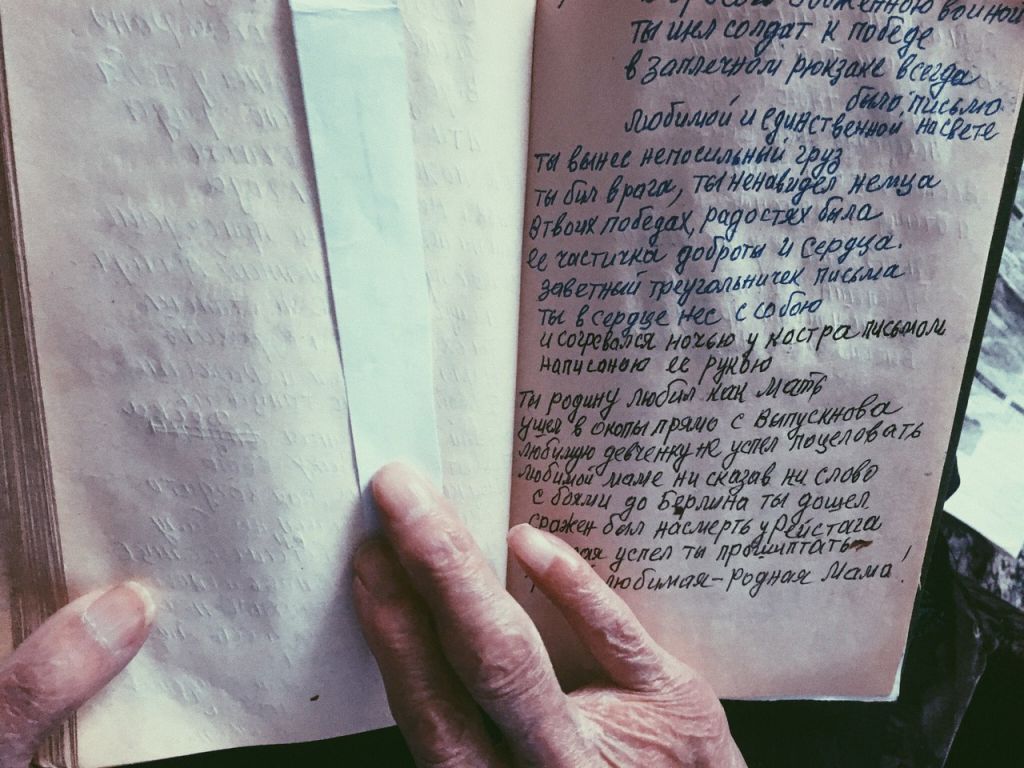 войной
ты шел солдат к победе
в заплечном рюкзаке всегда
было, письмо
любимой и единственной на свете
ты вынес непосильный груз
ты бил врага, ты ненавидел немца
в твоих победах, радостях была
ее частичка доброты и сердца.
заветный треугольничек письма
ты в сердце нес с собою
и согревался ночью у костра письмом
написоною ее рукою
ты родину любил как мать
ушел в окопы прямо с выпускнова
любимую девченку не успел поцеловать
любимой маме ни сказав ни слово
с боями до Берлина ты дошел
сражен был насмерть у Рейстага
успел ты прошиптать
любимая-Родная Мама!